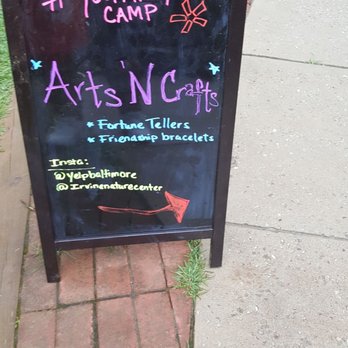 CAMP
Arts 'N Crafts
* Fortune Tellers
* Friendship bracelets
Insta:
@yelpbaltimore
@Irvinenaturecenter